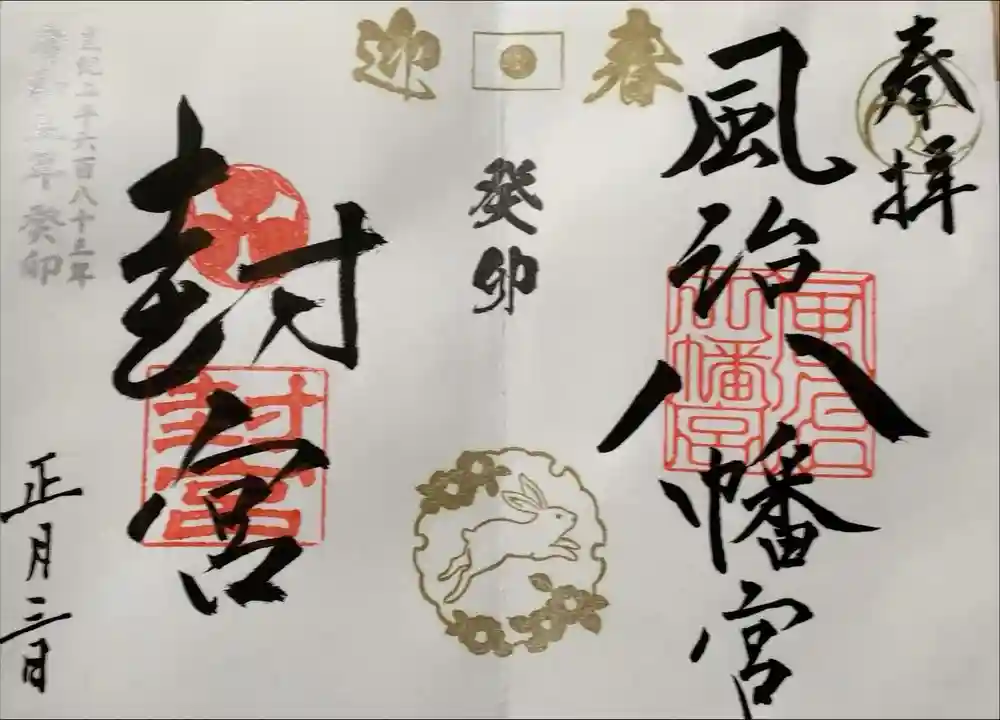 奉拝
風治八幡宮
風治八幡宮
迎春
癸卯
封宮
封宮
皇紀二千六百八十三年
年癸卯
正月三日